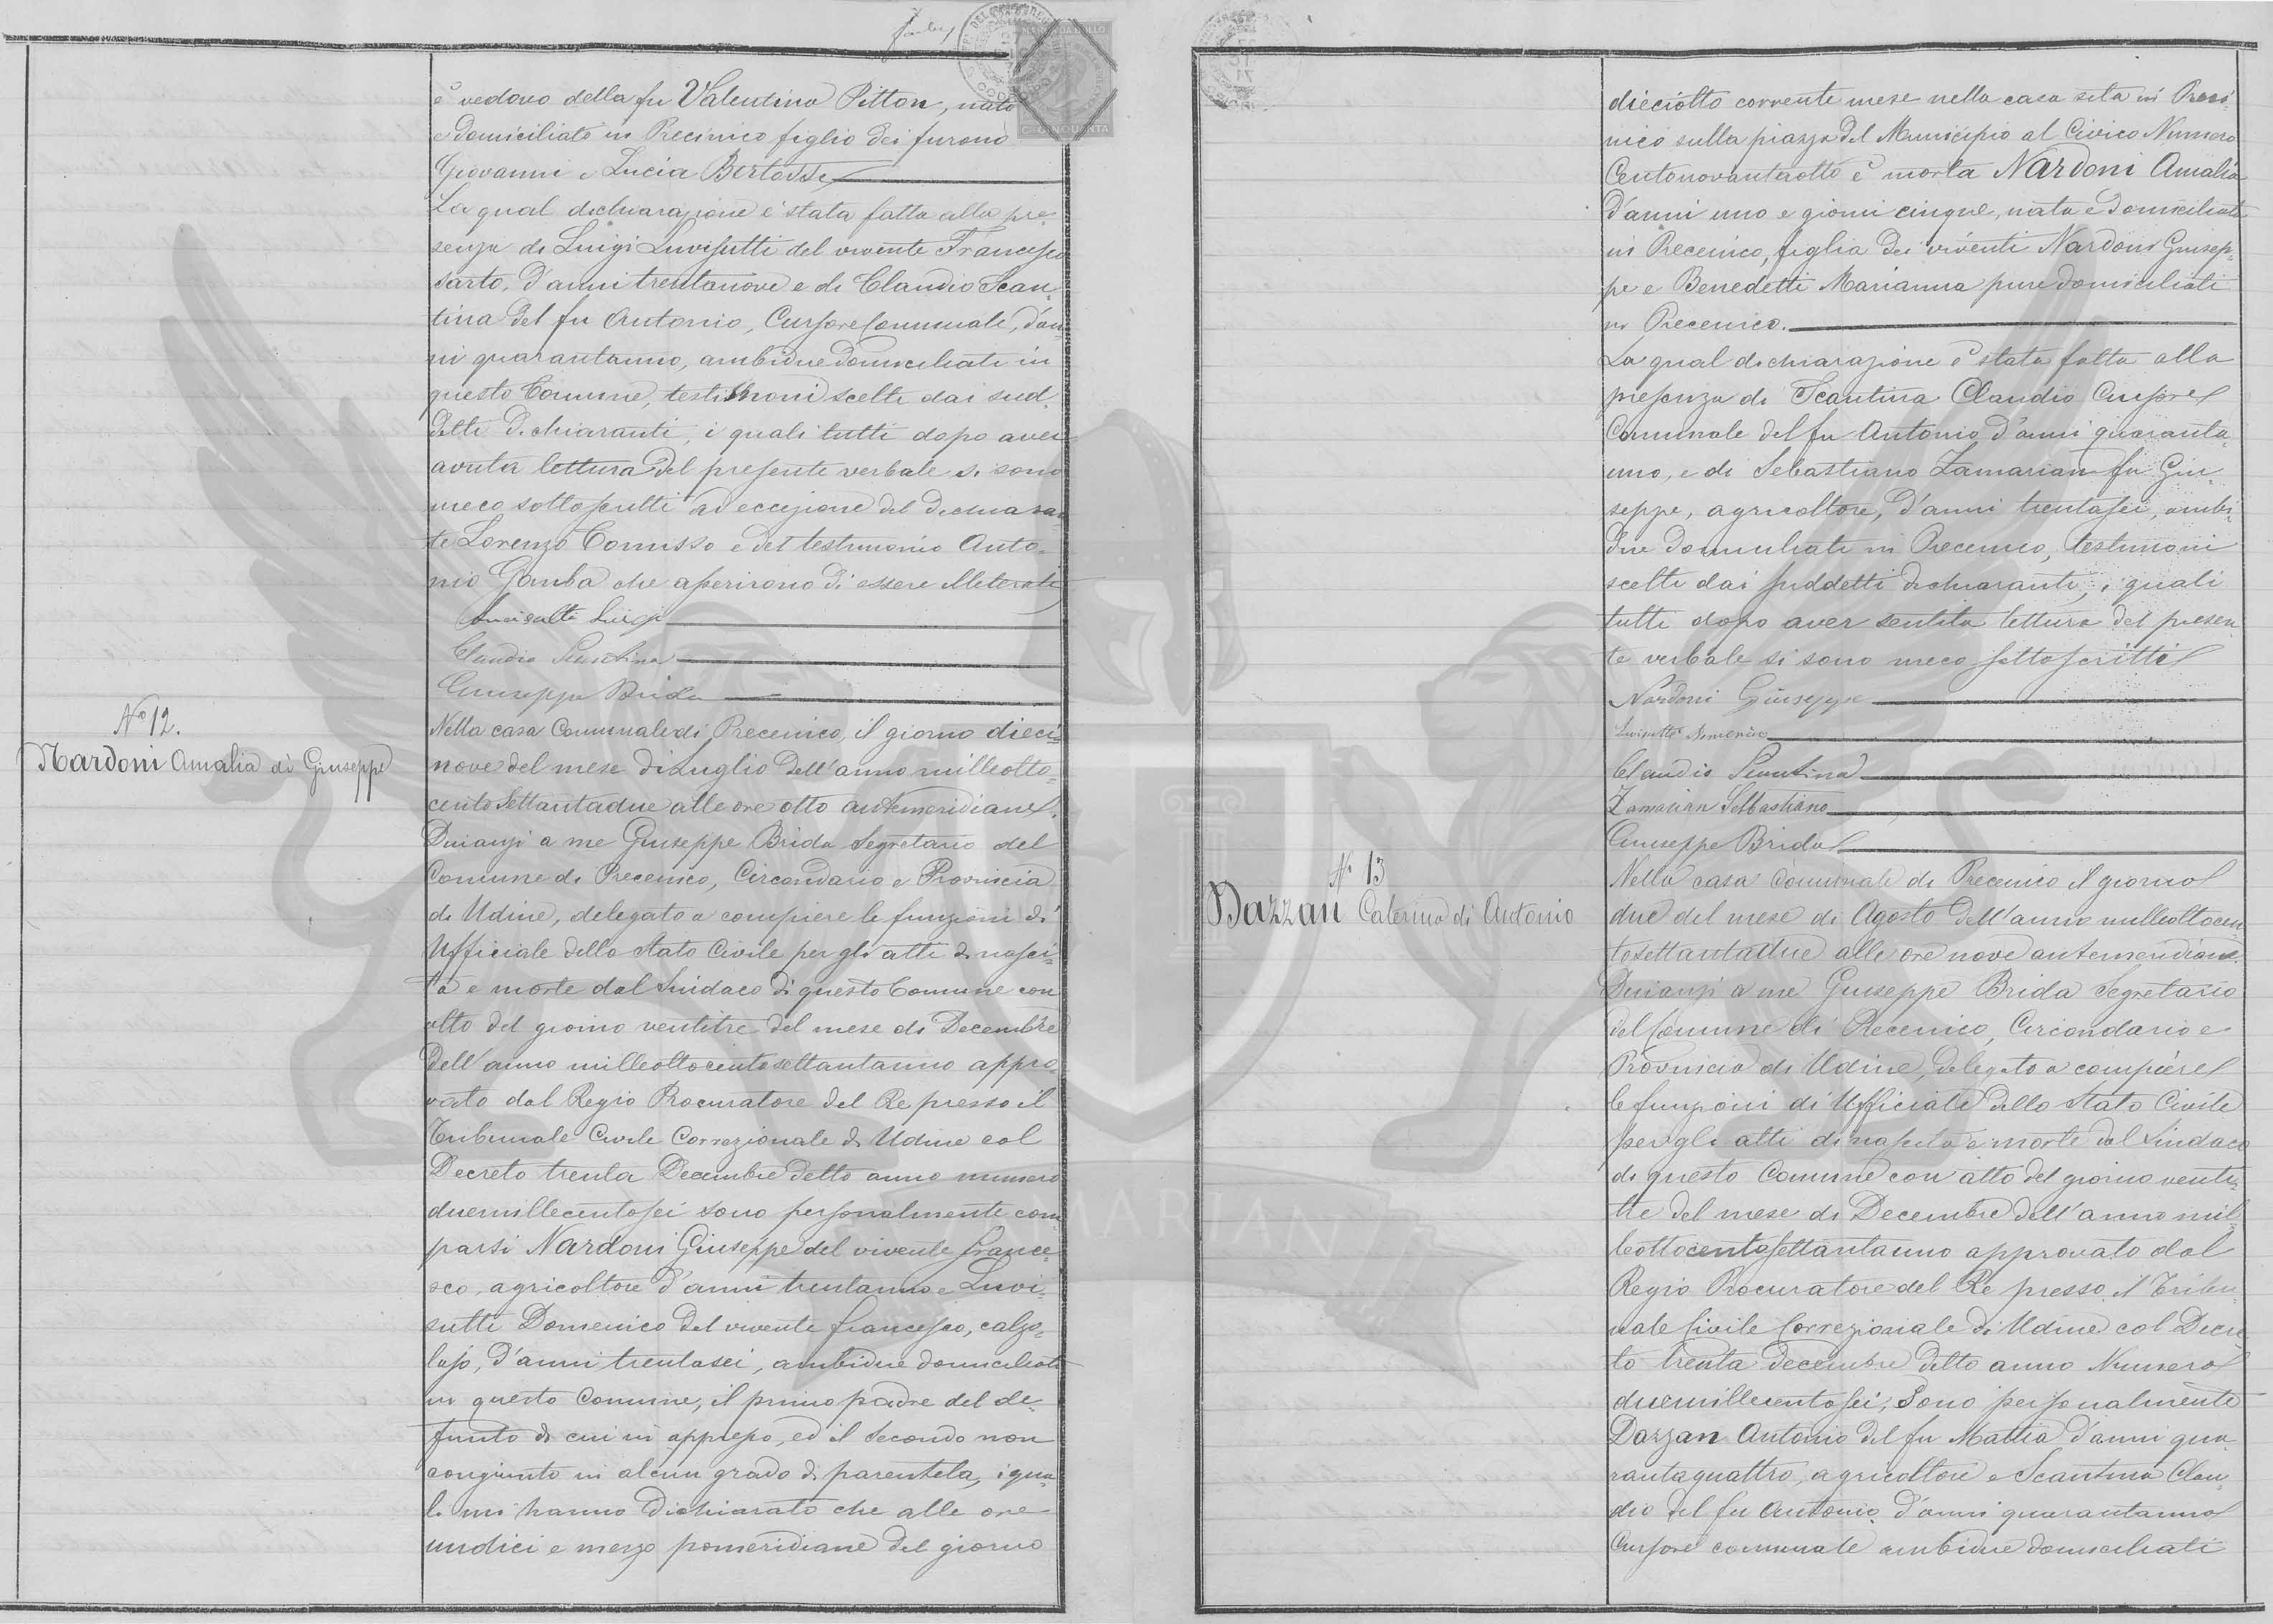 è vedovo della fu Valentina Pitton, nato
e domiciliato in Precenico figlio dei furono
Giovanni e Lucia Bertossi
La qual dichiarazione è stata fatta alla pre-
senza di Luigi Luvisutti del vivente Francesco
sarto, d'anni trentanove e di Claudio Scan-
tina del fu Antonio, Cursore Comunale, d'an-
ni quarantauno, ambidue domiciliati in
questo Comune, testimoni scelti dai sud-
detti dichiaranti, i quali tutti dopo aver
avuta lettura del presente verbale si sono
meco sottoscritti ad eccezione del dichiaran-
te Lorenzo Comisso e del testimonio Anto-
nio Gamba che asserirono di essere illeterati
Luvisutti Luigi
Claudio Scantina
Giuseppe Brida
No 12.
Nardoni Amalia di Giuseppe
Nella casa Comunale di Precenico, il giorno dieci-
nove del mese di Luglio dell'anno milleotto-
cento settantadue alle ore otto antemeridiane.
Dinanzi a me Giuseppe Brida Segretario del
Comune di Precenico, Circondario e Provincia
di Udine, delegato a compiere le funzioni di
Ufficiale dello Stato Civile per gli atti di nasci-
ta e morte dal Sindaco di questo Comune con
atto del giorno ventitre del mese di Decembre
dell'anno milleottocentosettantauno appro-
vato dal Regio Procuratore del Re presso il
Tribunale Civile Correzionale di Udine col
Decreto trenta Decembre detto anno numero
duemillecentosei sono personalmente com-
parsi Nardoni Giuseppe del vivente France-
sco, agricoltore d'anni trentauno e Luvi-
sutti Domenico del vivente Francesco, calzo-
lajo, d'anni trentasei, ambidue domiciliati
in questo Comune, il primo padre del de-
funto di cui in appresso, ed il secondo non
congiunto in alcun grado di parentela, i qua-
li mi hanno dichiarato che alle ore
undici e mezzo pomeridiane del giorno
CINQUANTA
dieciotto corrente mese nella casa sita in Prece-
nico sulla piazza del Municipio al Civico Numero
Centonovantaotto è morta Nardoni Amalia
d'anni uno e giorni cinque, nata e domiciliata
in Precenico, figlia dei viventi Nardoni Giusep-
pe e Benedetti Marianna pure domiciliati
in Precenico.
La qual dichiarazione è stata fatta alla
presenza di Scantina Claudio Cursore
Comunale del fu Antonio, d'anni quaranta-
uno, e di Sebastiano Zamarian fu Giu-
seppe, agricoltore, d'anni trentasei, ambi-
due domiciliati in Precenico, testimoni
scelti dai suddetti dichiaranti, i quali
tutti dopo aver sentita lettura del presen-
te verbale si sono meco sottoscritti
Nardoni Giuseppe
Luvisutti Domenico
Claudio Scantina
Zamarian Sebbastiano
Giuseppe Brida
No 13
Dazzan Caterina di Antonio
Nella casa Comunale di Precenico il giorno
due del mese di Agosto dell'anno milleottocen-
tosettantadue alle ore nove antemeridiane.
Dinanzi a me Giuseppe Brida Segretario
del Comune di Precenico, Circondario e
Provincia di Udine, delegato a compiere
le funzioni di Ufficiale dello Stato Civile
per gli atti di nascita e morte dal Sindaco
di questo Comune con atto del giorno venti-
tre del mese di Decembre dell'anno mil-
leottocentosettantauno approvato dal
Regio Procuratore del Re presso il Tribu-
nale Civile Correzionale di Udine col Decre-
to trenta decembre detto anno Numero
duemillecentosei, sono personalmente
Dazzan Antonio del fu Mattia d'anni qua-
rantaquattro, agricoltore e Scantina Clau-
dio del fu Antonio d'anni quarantauno
Cursore comunale ambidue domiciliati